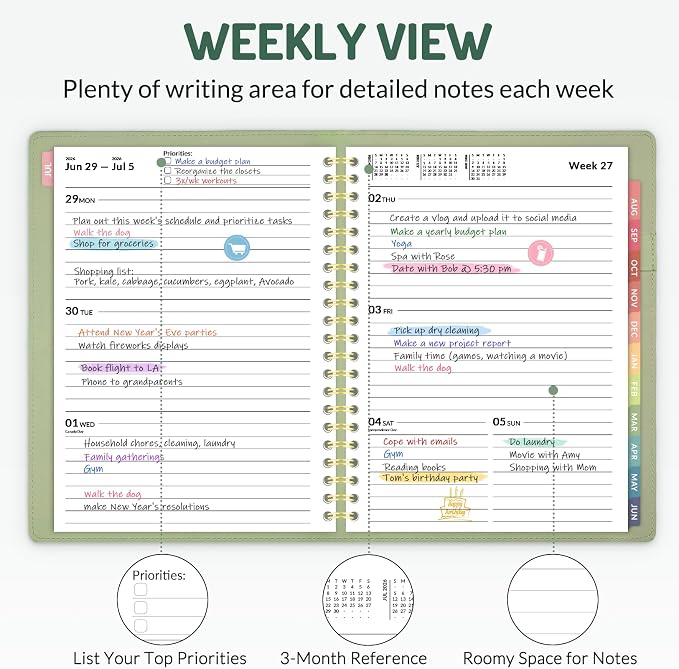 WEEKLY VIEW
Plenty of writing area for detailed notes each week
JUL
2026 2026
Jun 29 — Jul 5
Priorities:
Make a budget plan
Reorganize the closets
3x/wk workouts
29 MON
Plan out this week's schedule and prioritize tasks
Walk the dog
Shop for groceries
Shopping list:
Pork, kale, cabbage, cucumbers, eggplant, Avocado
30 TUE
Attend New Year's Eve parties
Watch fireworks displays
Book flight to LA
Phone to grandparents
01 WED
Canada Day
Household chores: cleaning, laundry
Family gatherings
Gym
Walk the dog
make New Year's resolutions
Week 27
02 THU
Create a vlog and upload it to social media
Make a yearly budget plan
Yoga
Spa with Rose
Date with Bob @ 5:30 pm
03 FRI
Pick up dry cleaning
Make a new project report
Family time (games, watching a movie)
Walk the dog
04 SAT
Independence Day
Cope with emails
Gym
Reading books
Tom's birthday party
Happy Birthday
05 SUN
Do laundry
Movie with Amy
Shopping with Mom
AUG
SEP
OCT
NOV
DEC
JAN
FEB
MAR
APR
MAY
JUN
Priorities:
List Your Top Priorities
M T W T F S S M
1 2 3 4 5 6
8 9 10 11 12 13 5 6
15 16 17 18 19 20 12 13
22 23 24 25 26 27 19 20
29 30
JUL 2026
3-Month Reference
Roomy Space for Notes